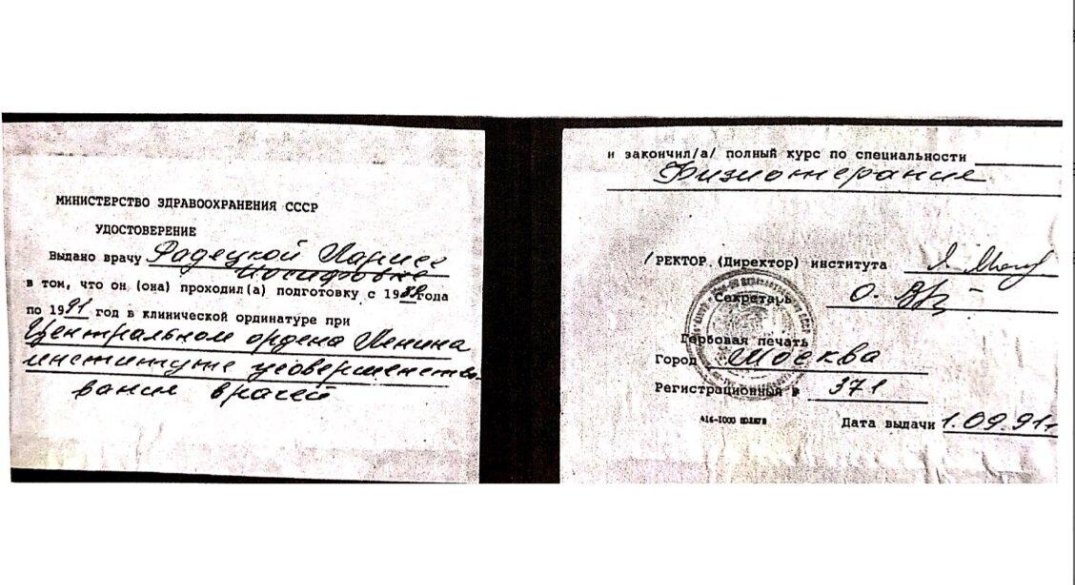 МИНИСТЕРСТВО ЗДРАВООХРАНЕНИЯ СССР
УДОСТОВЕРЕНИЕ
Выдано врачу Радецкой Ларисе
Иосифовне
в том, что он (она) проходил(а) подготовку с 19 года
по 1991 год в клинической ординатуре при
Центральном ордена Ленина
институте усовершенство-
вания врачей
и закончил/а/ полный курс по специальности
Физиотерапия
РЕКТОР (Директор) института
Секретарь
Гербовая печать
Город Москва
Регистрационный № 371
Дата выдачи 1.09.91г